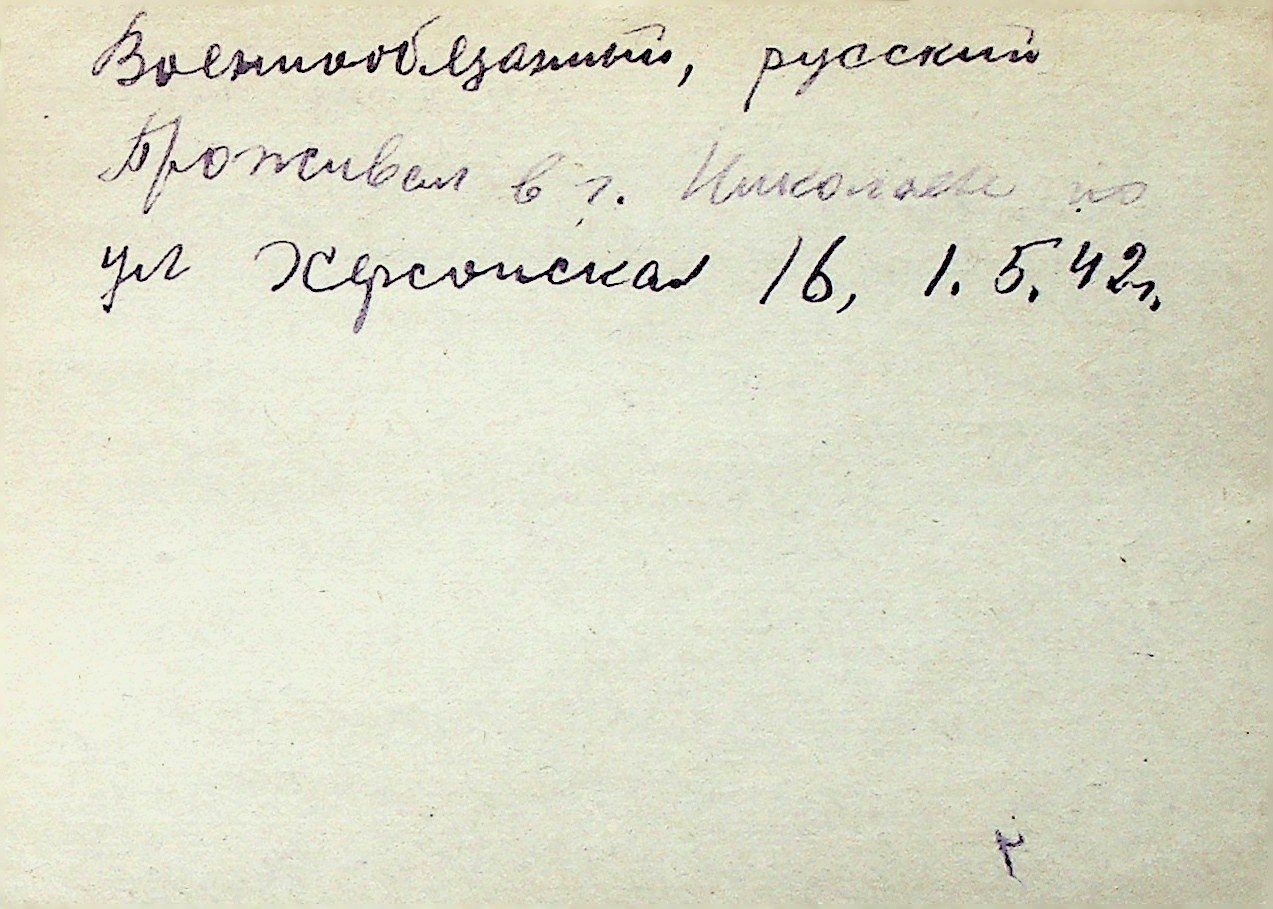 Военнообязанный, русский
Проживал в г. Николаеве по
ул Херсонская 16, 1.5.42г.